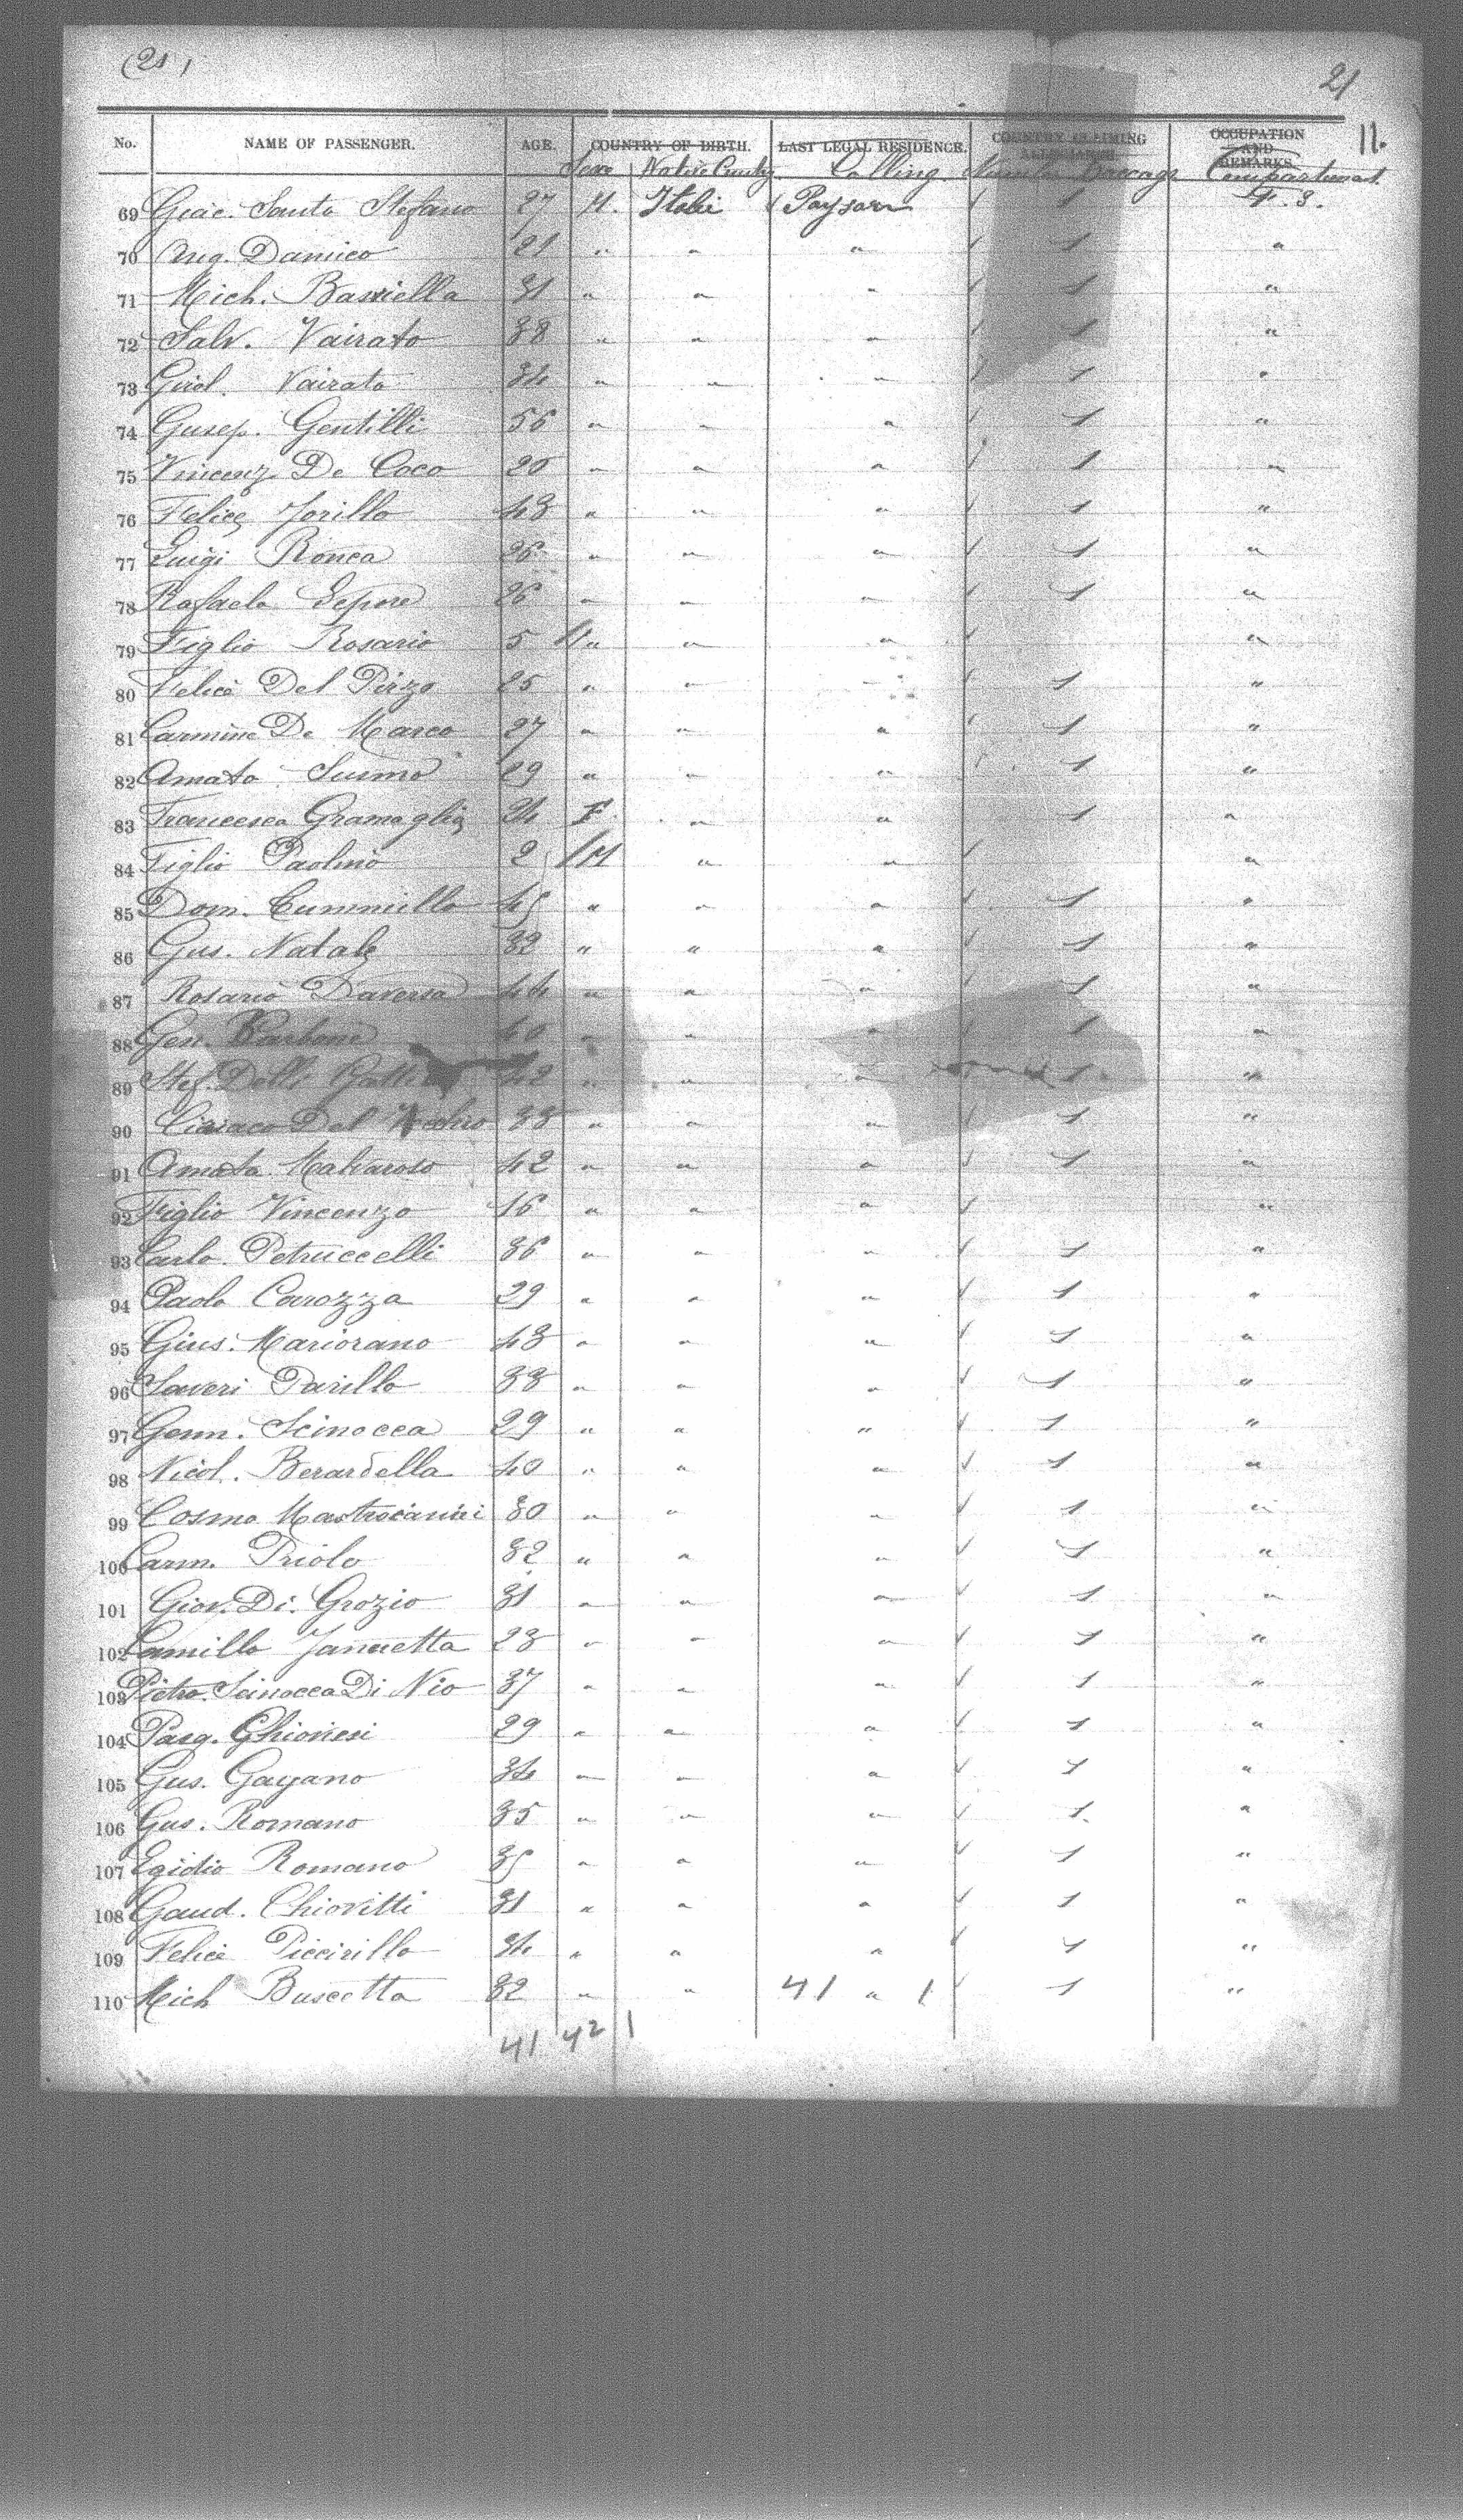 (21)
21
No. NAME OF PASSENGER. AGE. COUNTRY OF BIRTH. LAST LEGAL RESIDENCE. COUNTRY CLAIMING ALLEGIANCE. OCCUPATION AND REMARKS. 11.
Sexe Native Country Calling Number Baccage Compartment
69 Giac. Santo Stefano 27 M. Italie Paysan 1 F. 3.
70 Ang. Damico 21 " " " 1 "
71 Mich. Bassiella 31 " " " 1 "
72 Salv. Vairato 38 " " " 1 "
73 Girol. Vairato 34 " " " 1 "
74 Gusep. Gentilli 56 " " " 1 "
75 Vincenz. De Coco 20 " " " 1 "
76 Felice Jorillo 43 " " " 1 "
77 Luigi Ronca 26 " " " 1 "
78 Rafaele Lepore 26 " " " 1 "
79 Figlio Rosario 5 " " " "
80 Felice Del Pizzo 25 " " " 1 "
81 Carmine De Marco 27 " " " 1 "
82 Amato 29 " " " 1 "
83 Francesca Gramaglia 24 F " " 1 "
84 Figlio Paolino 2 M " " "
85 Dom. Cummillo 45 " " " 1 "
86 Gus. Natale 32 " " " 1 "
87 Rosario Daversa 44 " " " 1 "
88 Gen. Carbone 40 " " " 1 "
89 Stef. Delli Gatti 42 " " " 1 "
90 Ciriaco Del Vechio 33 " " " 1 "
91 Amato Malvaroso 42 " " " 1 "
92 Figlio Vincenzo 16 " " " "
93 Carlo Petruccelli 36 " " " 1 "
94 Paolo Carozza 29 " " " 1 "
95 Gius. Mariorano 43 " " " 1 "
96 Saveri Parillo 33 " " " 1 "
97 Genn. Scinocca 29 " " " 1 "
98 Nicol. Berardella 40 " " " 1 "
99 Cosmo 30 " " " 1 "
100 Carm. Priolo 32 " " " 1 "
101 Giov. Di Grozio 31 " " " 1 "
102 Camillo Jannetta 23 " " " 1 "
103 Pietro Scinocca Di Nio 37 " " " 1 "
104 Pasq. Ghioneri 29 " " " 1 "
105 Gus. Gagano 34 " " " 1 "
106 Gus. Romano 35 " " " 1 "
107 Egidio Romano 35 " " " 1 "
108 Gaud. Chiovitti 31 " " " 1 "
109 Felice Piccirillo 34 " " " 1 "
110 Mich Buscetta 32 " " 41 " 1 1 "
41 42 1